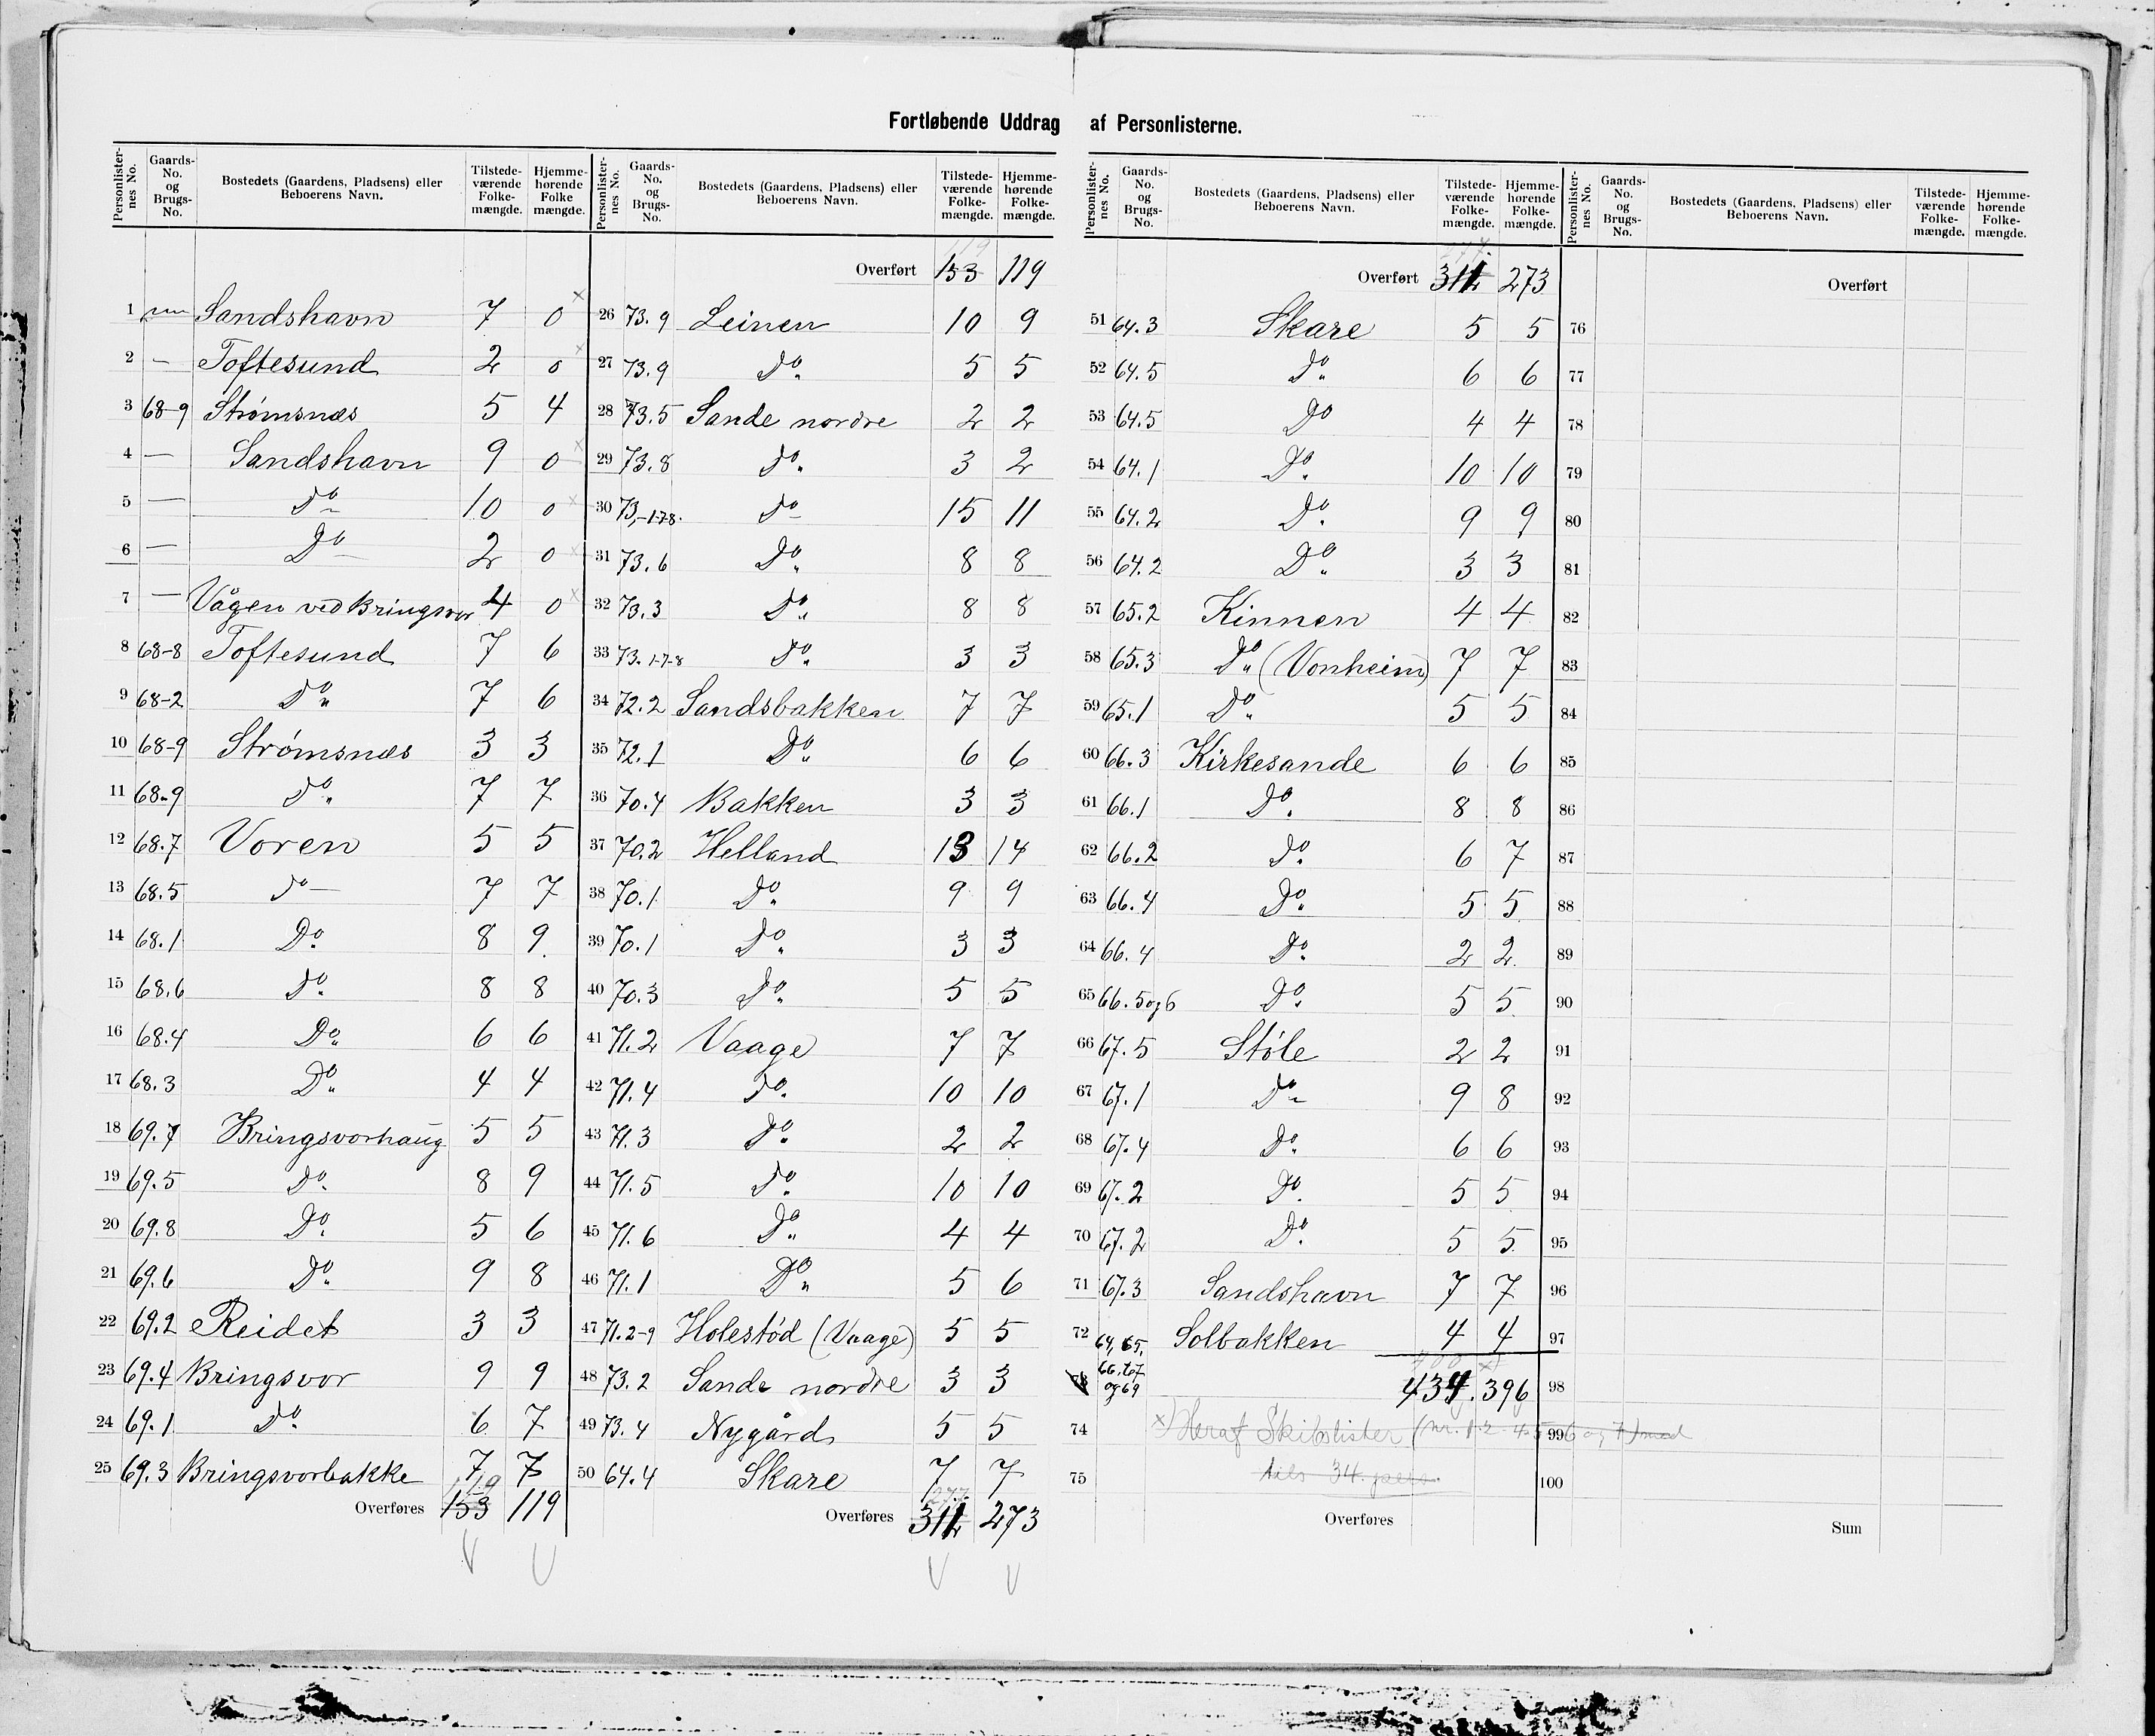 Fortløbende Uddrag af Personlisterne.
Personlister-nes No. | Gaards-No. og Brugs-No. | Bostedets (Gaardens, Pladsens) eller Beboerens Navn. | Tilstede-værende Folke-mængde. | Hjemme-hørende Folke mængde.
1 Sandshavn 7 0 x
2 — Toftesund 2 0 x
3 68-9 Strømsnæs 5 4
4 — Sandshavn 9 0 x
5 — Do 10 0 x
6 — Do 2 0 x
7 — Vågen ved Bringsvor 4 0 x
8 68-8 Toftesund 7 6
9 68-2 Do 7 6
10 68-9 Strømsnæs 3 3
11 68-9 Do 7 7
12 68.7 Voren 5 5
13 68.5 do 7 7
14 68.1 Do 8 9
15 68.6 Do 8 8
16 68.4 Do 6 6
17 68.3 Do 4 4
18 69.7 Bringsvorhaug 5 5
19 69.5 Do 8 9
20 69.8 Do 5 6
21 69.6 Do 9 8
22 69.2 Reidet 3 3
23 69.4 Bringsvor 9 9
24 69.1 Do 6 7
25 69.3 Bringsvorbakke 7 7
119
Overføres 153 119
Personlister-nes No. | Gaards-No. og Brugs-No. | Bostedets (Gaardens, Pladsens) eller Beboerens Navn. | Tilstede-værende Folke-mængde. | Hjemme-hørende Folke-mængde.
119
Overført 153 119
26 73.9 Leinen 10 9
27 73.9 Do 5 5
28 73.5 Sande nordre 2 2
29 73.8 Do 3 2
30 73,-1-7-8. Do 15 11
31 73.6 Do 8 8
32 73.3 Do 8 8
33 73.1-7-8 Do 3 3
34 72.2 Sandsbakken 7 7
35 72.1 Do 6 6
36 70.4 Bakken 3 3
37 70.2 Helland 13 14
38 70.1 Do 9 9
39 70.1 Do 3 3
40 70.3 Do 5 5
41 71.2 Vaage 7 7
42 71.4 Do 10 10
43 71.3 Do 2 2
44 71.5 Do 10 10
45 71.6 Do 4 4
46 71.1 Do 5 6
47 71.2-9 Holestød (Vaage) 5 5
48 73.2 Sande nordre 3 3
49 73.4 Nygård 5 5
50 64.4 Skare 7 7
277
Overføres 311 273
Personlister-nes No. | Gaards-No. og Brugs-No. | Bostedets (Gaardens, Pladsens) eller Beboerens Navn. | Tilstede-værende Folke-mængde. | Hjemme-hørende Folke-mængde.
277.
Overført 311 273
51 64.3 Skare 5 5
52 64.5 Do 6 6
53 64.5 Do 4 4
54 64.1 Do 10 10
55 64.2 Do 9 9
56 64.2 Do 3 3
57 65.2 Kinnen 4 4
58 65.3 Do (Vonheim) 7 7
59 65.1 Do 5 5
60 66.3 Kirkesande 6 6
61 66.1 Do 8 8
62 66.2 Do 6 7
63 66.4 Do 5 5
64 66.4 Do 2 2
65 66.5og6 Do 5 5
66 67.5 Støle 2 2
67 67.1 Do 9 8
68 67.4 Do 6 6
69 67.2 Do 5 5
70 67.2 Do 5 5
71 67.3 Sandshavn 7 7
72 64, 65, Solbakken 4 4
400 x)
73 66, 67 og 69 434. 396
74 x) Heraf Skibslister (nr. 1. 2. 4. 5. 6 og 7) med
75 tils 34 pers.
Overføres
Personlister-nes No. | Gaards-No. og Brugs-No. | Bostedets (Gaardens, Pladsens) eller Beboerens Navn. | Tilstede-værende Folke-mængde. | Hjemme-hørende Folke-mængde.
Overført
76
77
78
79
80
81
82
83
84
85
86
87
88
89
90
91
92
93
94
95
96
97
98
99
100
Sum